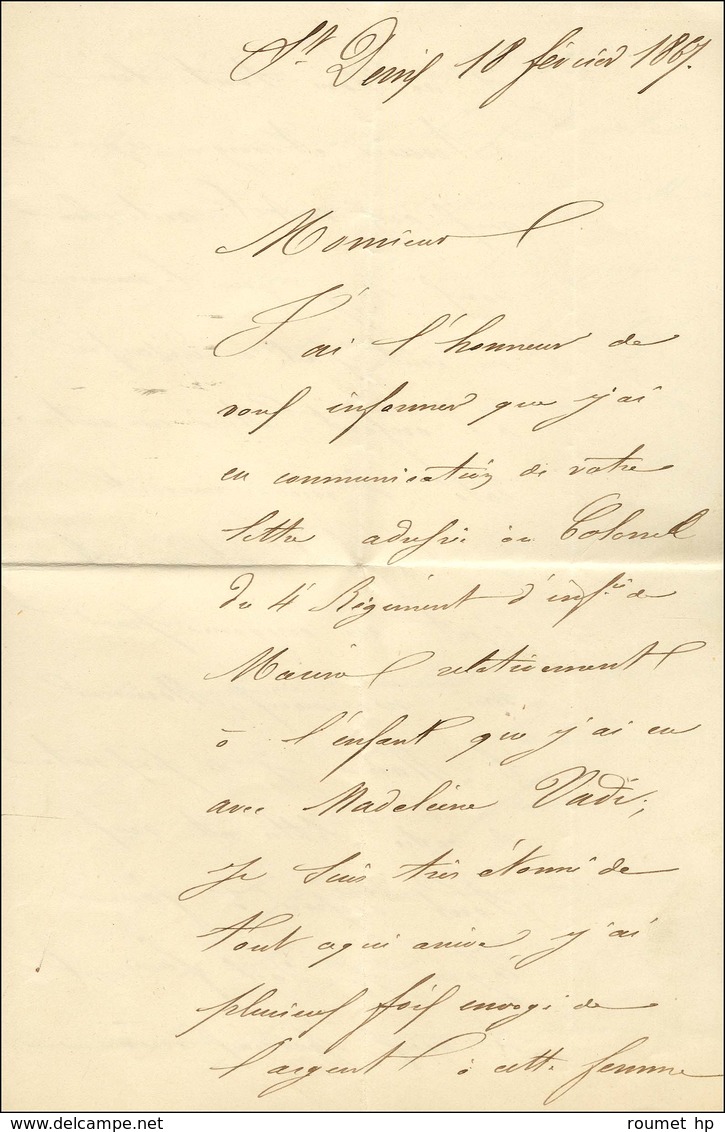 St Denis 18 février 1867.
Monsieur
J'ai l'honneur de
vous informer que j'ai
eu communication de votre
lettre adressée au Colonel
du 4e Régiment d'infie de
Marine relativement
à l'enfant que j'ai eu
avec Madeleine Vadi;
Je suis très étonné de
tout cequi arrive, j'ai
plusieurs fois envoyé de
l'argent à cette femme
roumet hp